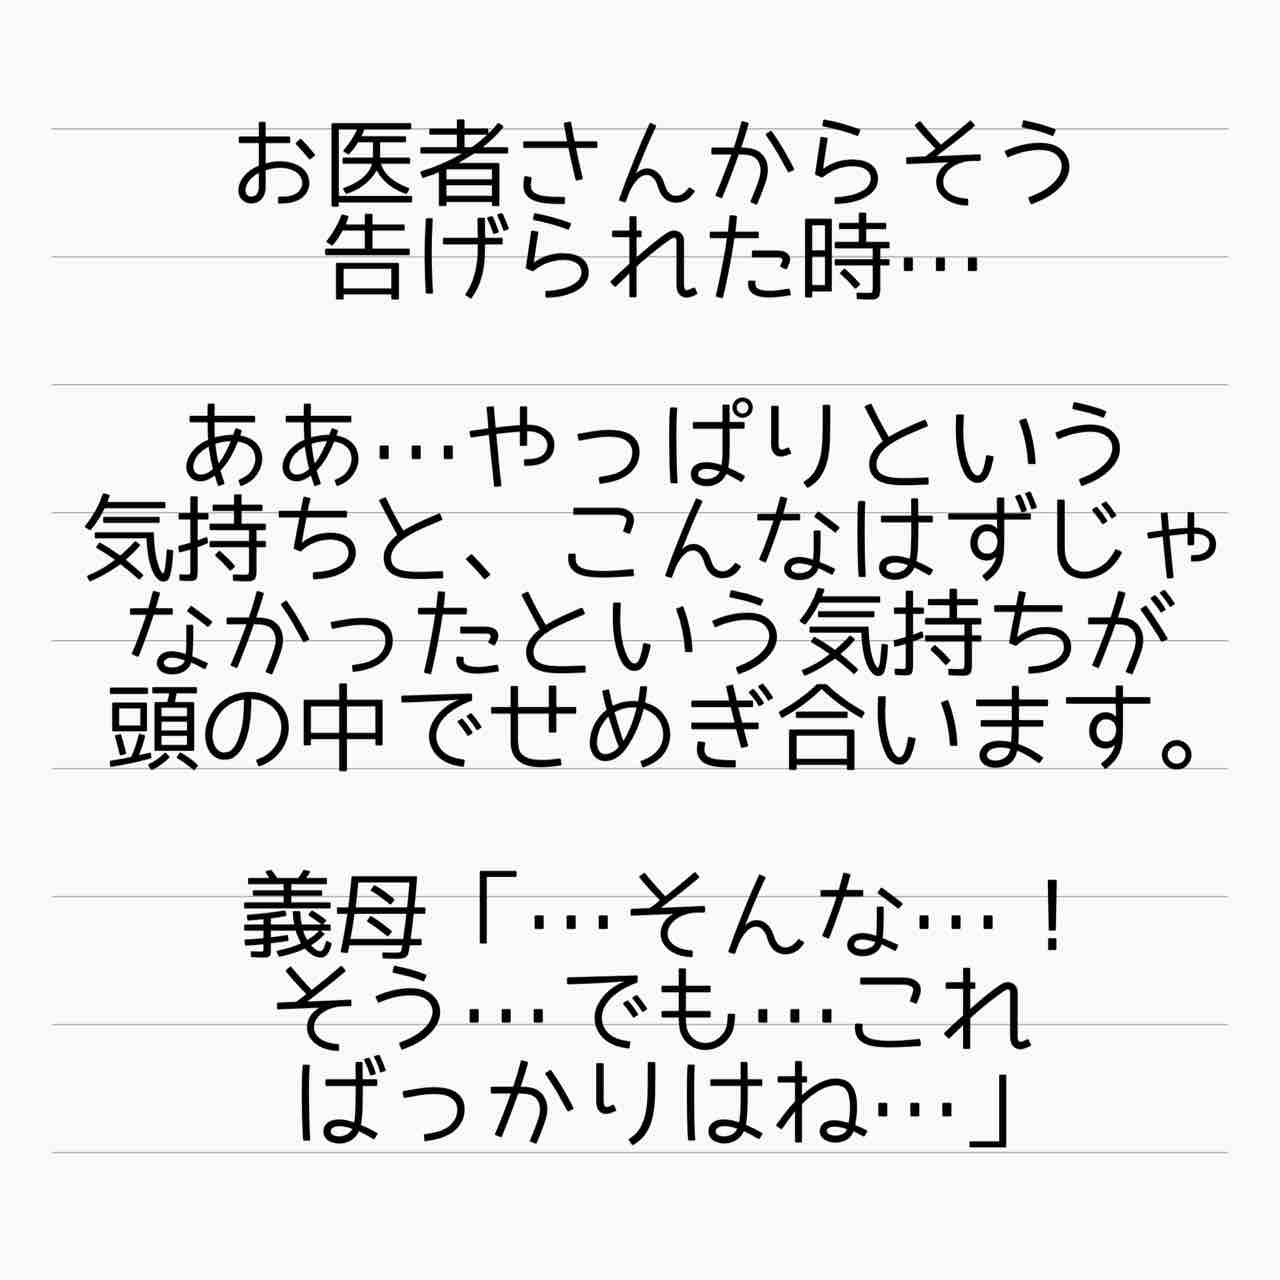 お医者さんからそう
告げられた時…
ああ…やっぱりという
気持ちと、こんなはずじゃ
なかったという気持ちが
頭の中でせめぎ合います。
義母「…そんな…！
そう…でも…これ
ばっかりはね…」